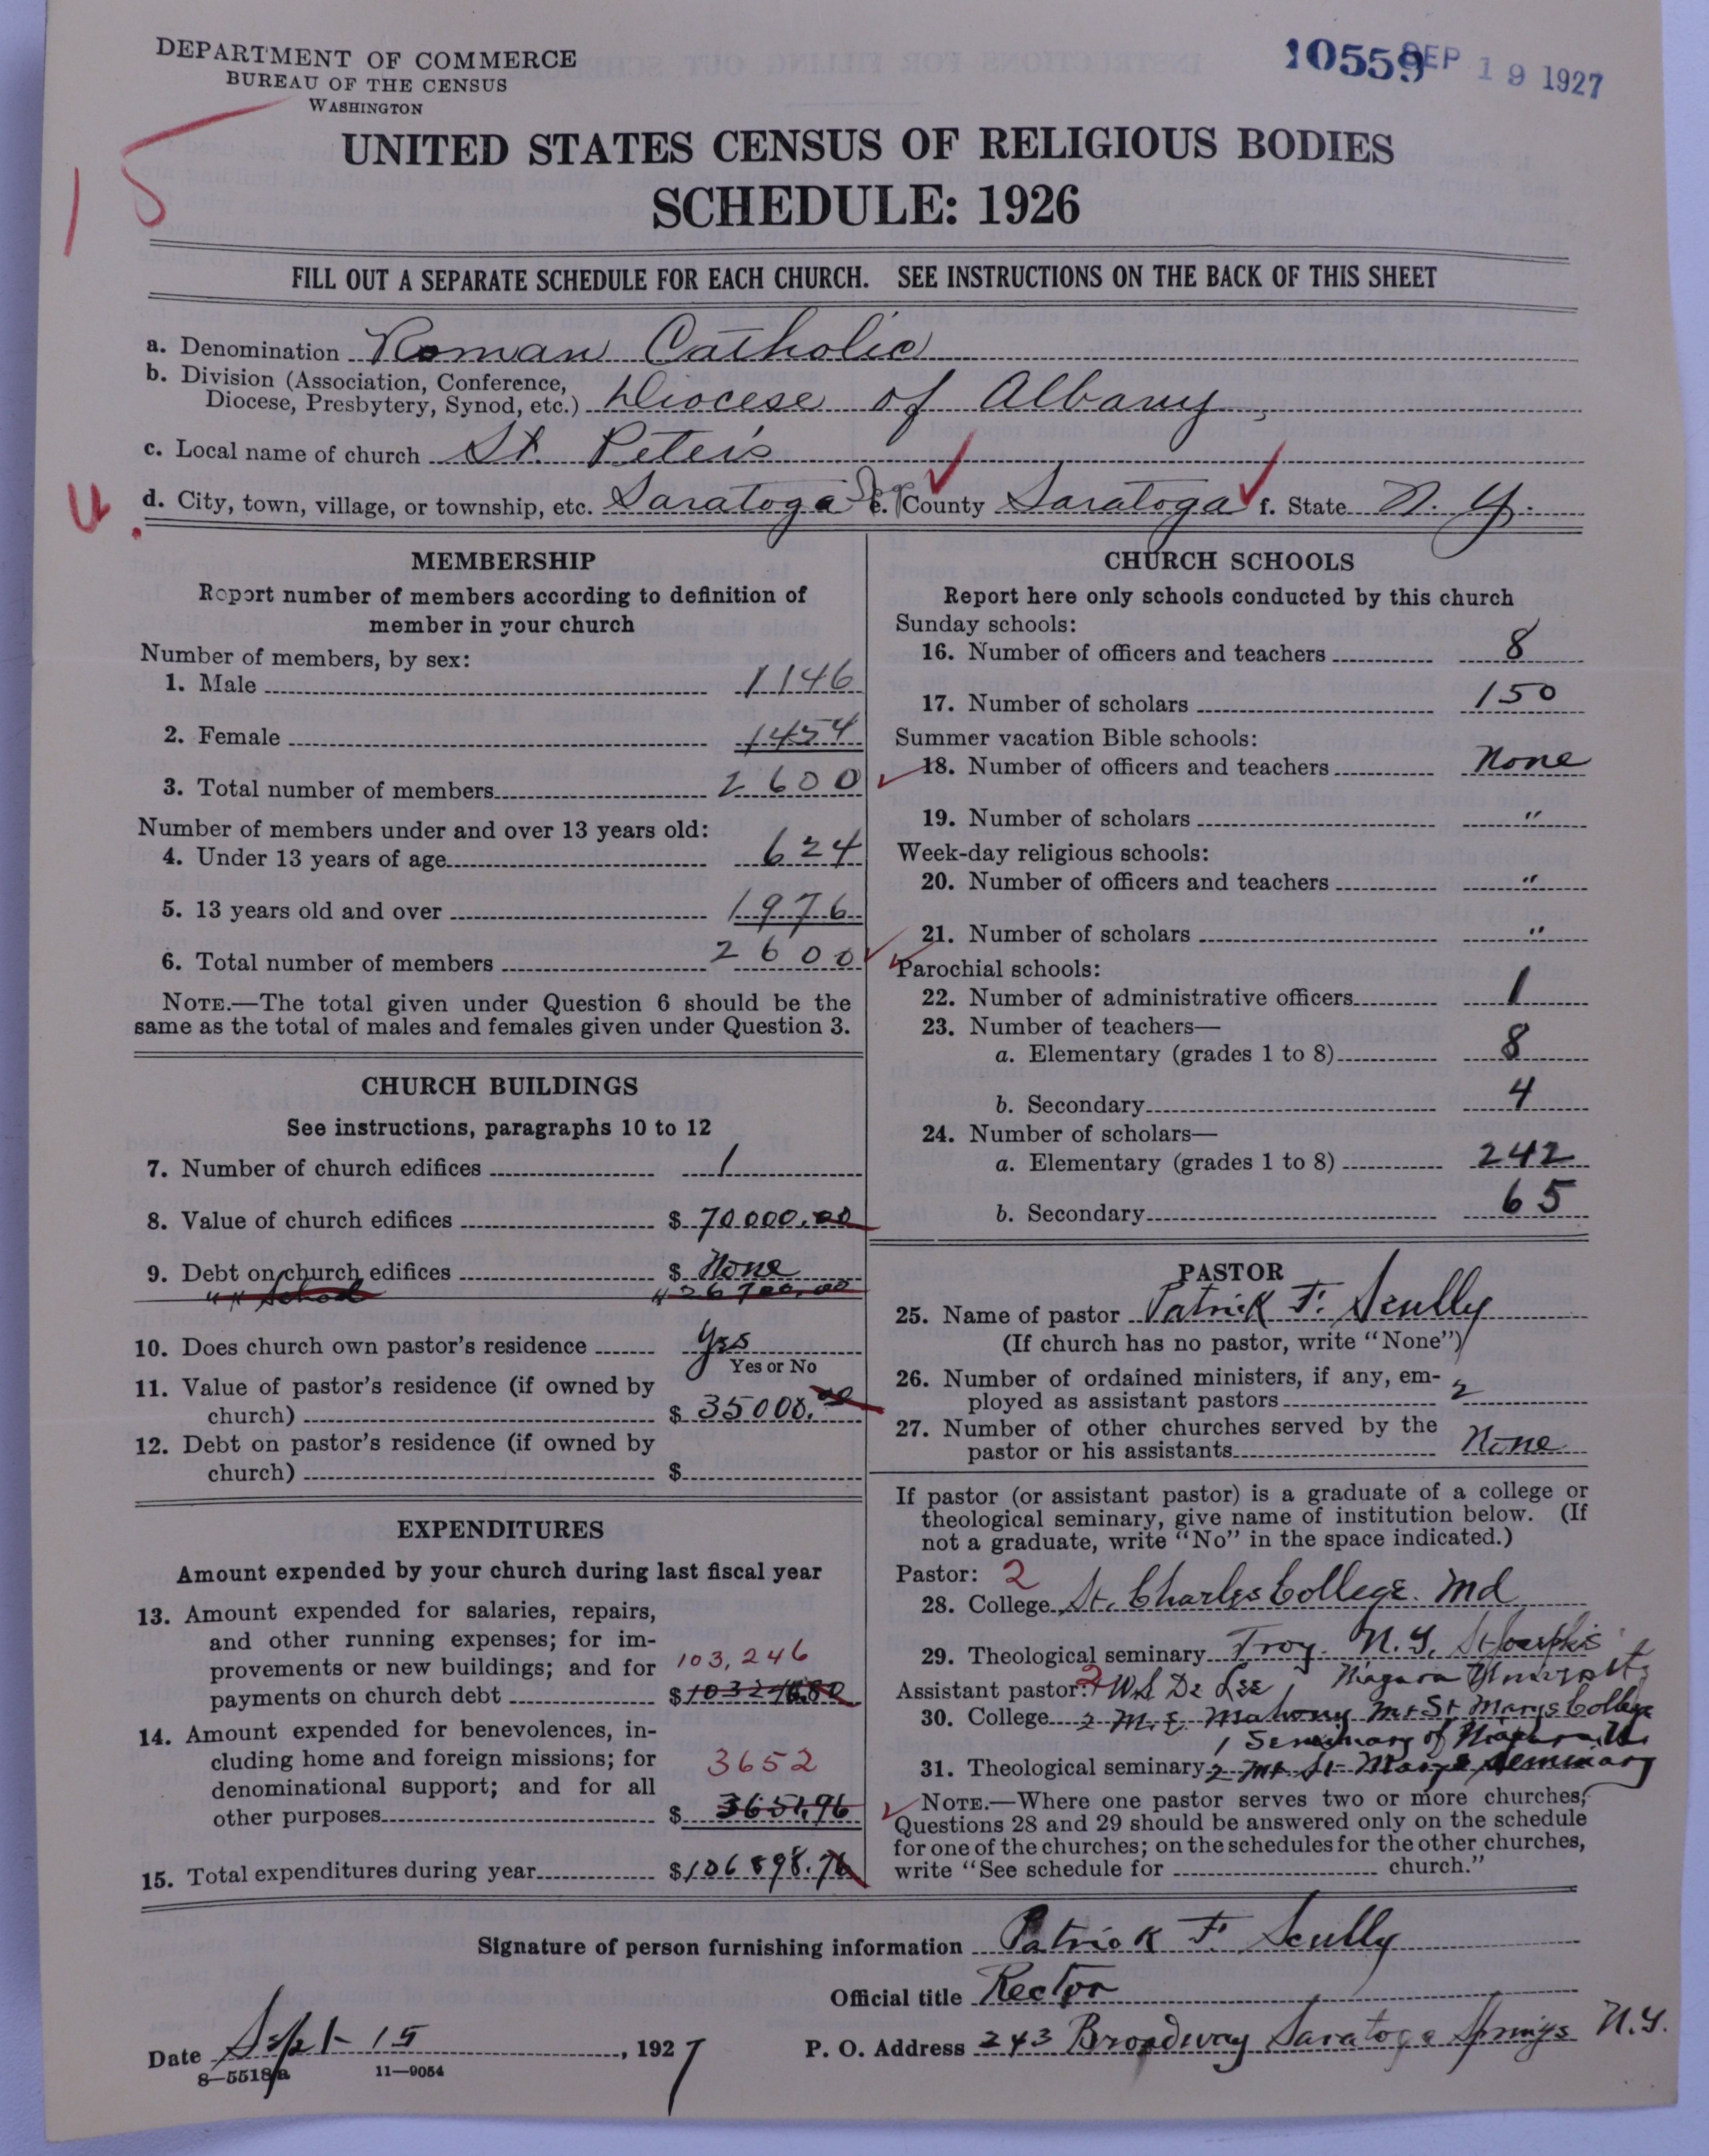 DEPARTMENT OF COMMERCE
BUREAU OF THE CENSUS
WASHINGTON
10559 SEP 19 1927
15
UNITED STATES CENSUS OF RELIGIOUS BODIES
SCHEDULE: 1926
FILL OUT A SEPARATE SCHEDULE FOR EACH CHURCH. SEE INSTRUCTIONS ON THE BACK OF THIS SHEET
a. Denomination Roman Catholic
b. Division (Association, Conference, Diocese, Presbytery, Synod, etc.) Diocese of Albany
c. Local name of church St. Peter's
d. City, town, village, or township, etc. Saratoga Spr e. County Saratoga f. State N. Y.
MEMBERSHIP
Report number of members according to definition of
member in your church
Number of members, by sex:
1. Male 1146
2. Female 1454
3. Total number of members 2600
Number of members under and over 13 years old:
4. Under 13 years of age 624
5. 13 years old and over 1976
6. Total number of members 2600
NOTE.—The total given under Question 6 should be the
same as the total of males and females given under Question 3.
CHURCH BUILDINGS
See instructions, paragraphs 10 to 12
7. Number of church edifices 1
8. Value of church edifices $ 70000.00
9. Debt on church edifices $ None
" " School " 26700.00
10. Does church own pastor's residence Yes
Yes or No
11. Value of pastor's residence (if owned by
church) $ 35000.00
12. Debt on pastor's residence (if owned by
church) $
EXPENDITURES
Amount expended by your church during last fiscal year
13. Amount expended for salaries, repairs,
and other running expenses; for im-
provements or new buildings; and for 103,246
payments on church debt $ 103246.80
14. Amount expended for benevolences, in-
cluding home and foreign missions; for 3652
denominational support; and for all
other purposes $ 3651.96
15. Total expenditures during year $ 106898.76
CHURCH SCHOOLS
Report here only schools conducted by this church
Sunday schools:
16. Number of officers and teachers 8
17. Number of scholars 150
Summer vacation Bible schools:
18. Number of officers and teachers None
19. Number of scholars "
Week-day religious schools:
20. Number of officers and teachers "
21. Number of scholars "
Parochial schools:
22. Number of administrative officers 1
23. Number of teachers—
a. Elementary (grades 1 to 8) 8
b. Secondary 4
24. Number of scholars—
a. Elementary (grades 1 to 8) 242
b. Secondary 65
PASTOR
25. Name of pastor Patrick F. Scully
(If church has no pastor, write "None")
26. Number of ordained ministers, if any, em-
ployed as assistant pastors 2
27. Number of other churches served by the
pastor or his assistants None
If pastor (or assistant pastor) is a graduate of a college or
theological seminary, give name of institution below. (If
not a graduate, write "No" in the space indicated.)
Pastor: 2
28. College St. Charles College. Md
29. Theological seminary Troy. N.Y. St Joseph's
Assistant pastor: 2 1 W S De Lee Niagara University
30. College 2 M. E. Mahony Mt St Marys College
1 Seminary of Niagara U.
31. Theological seminary 2 Mt St Mary's Seminary
NOTE.—Where one pastor serves two or more churches,
Questions 28 and 29 should be answered only on the schedule
for one of the churches; on the schedules for the other churches,
write "See schedule for church."
Signature of person furnishing information Patrick F. Scully
Official title Rector
Date Sept 15, 1927 P. O. Address 243 Broadway Saratoga Springs N.Y.
8—5518a 11—9054